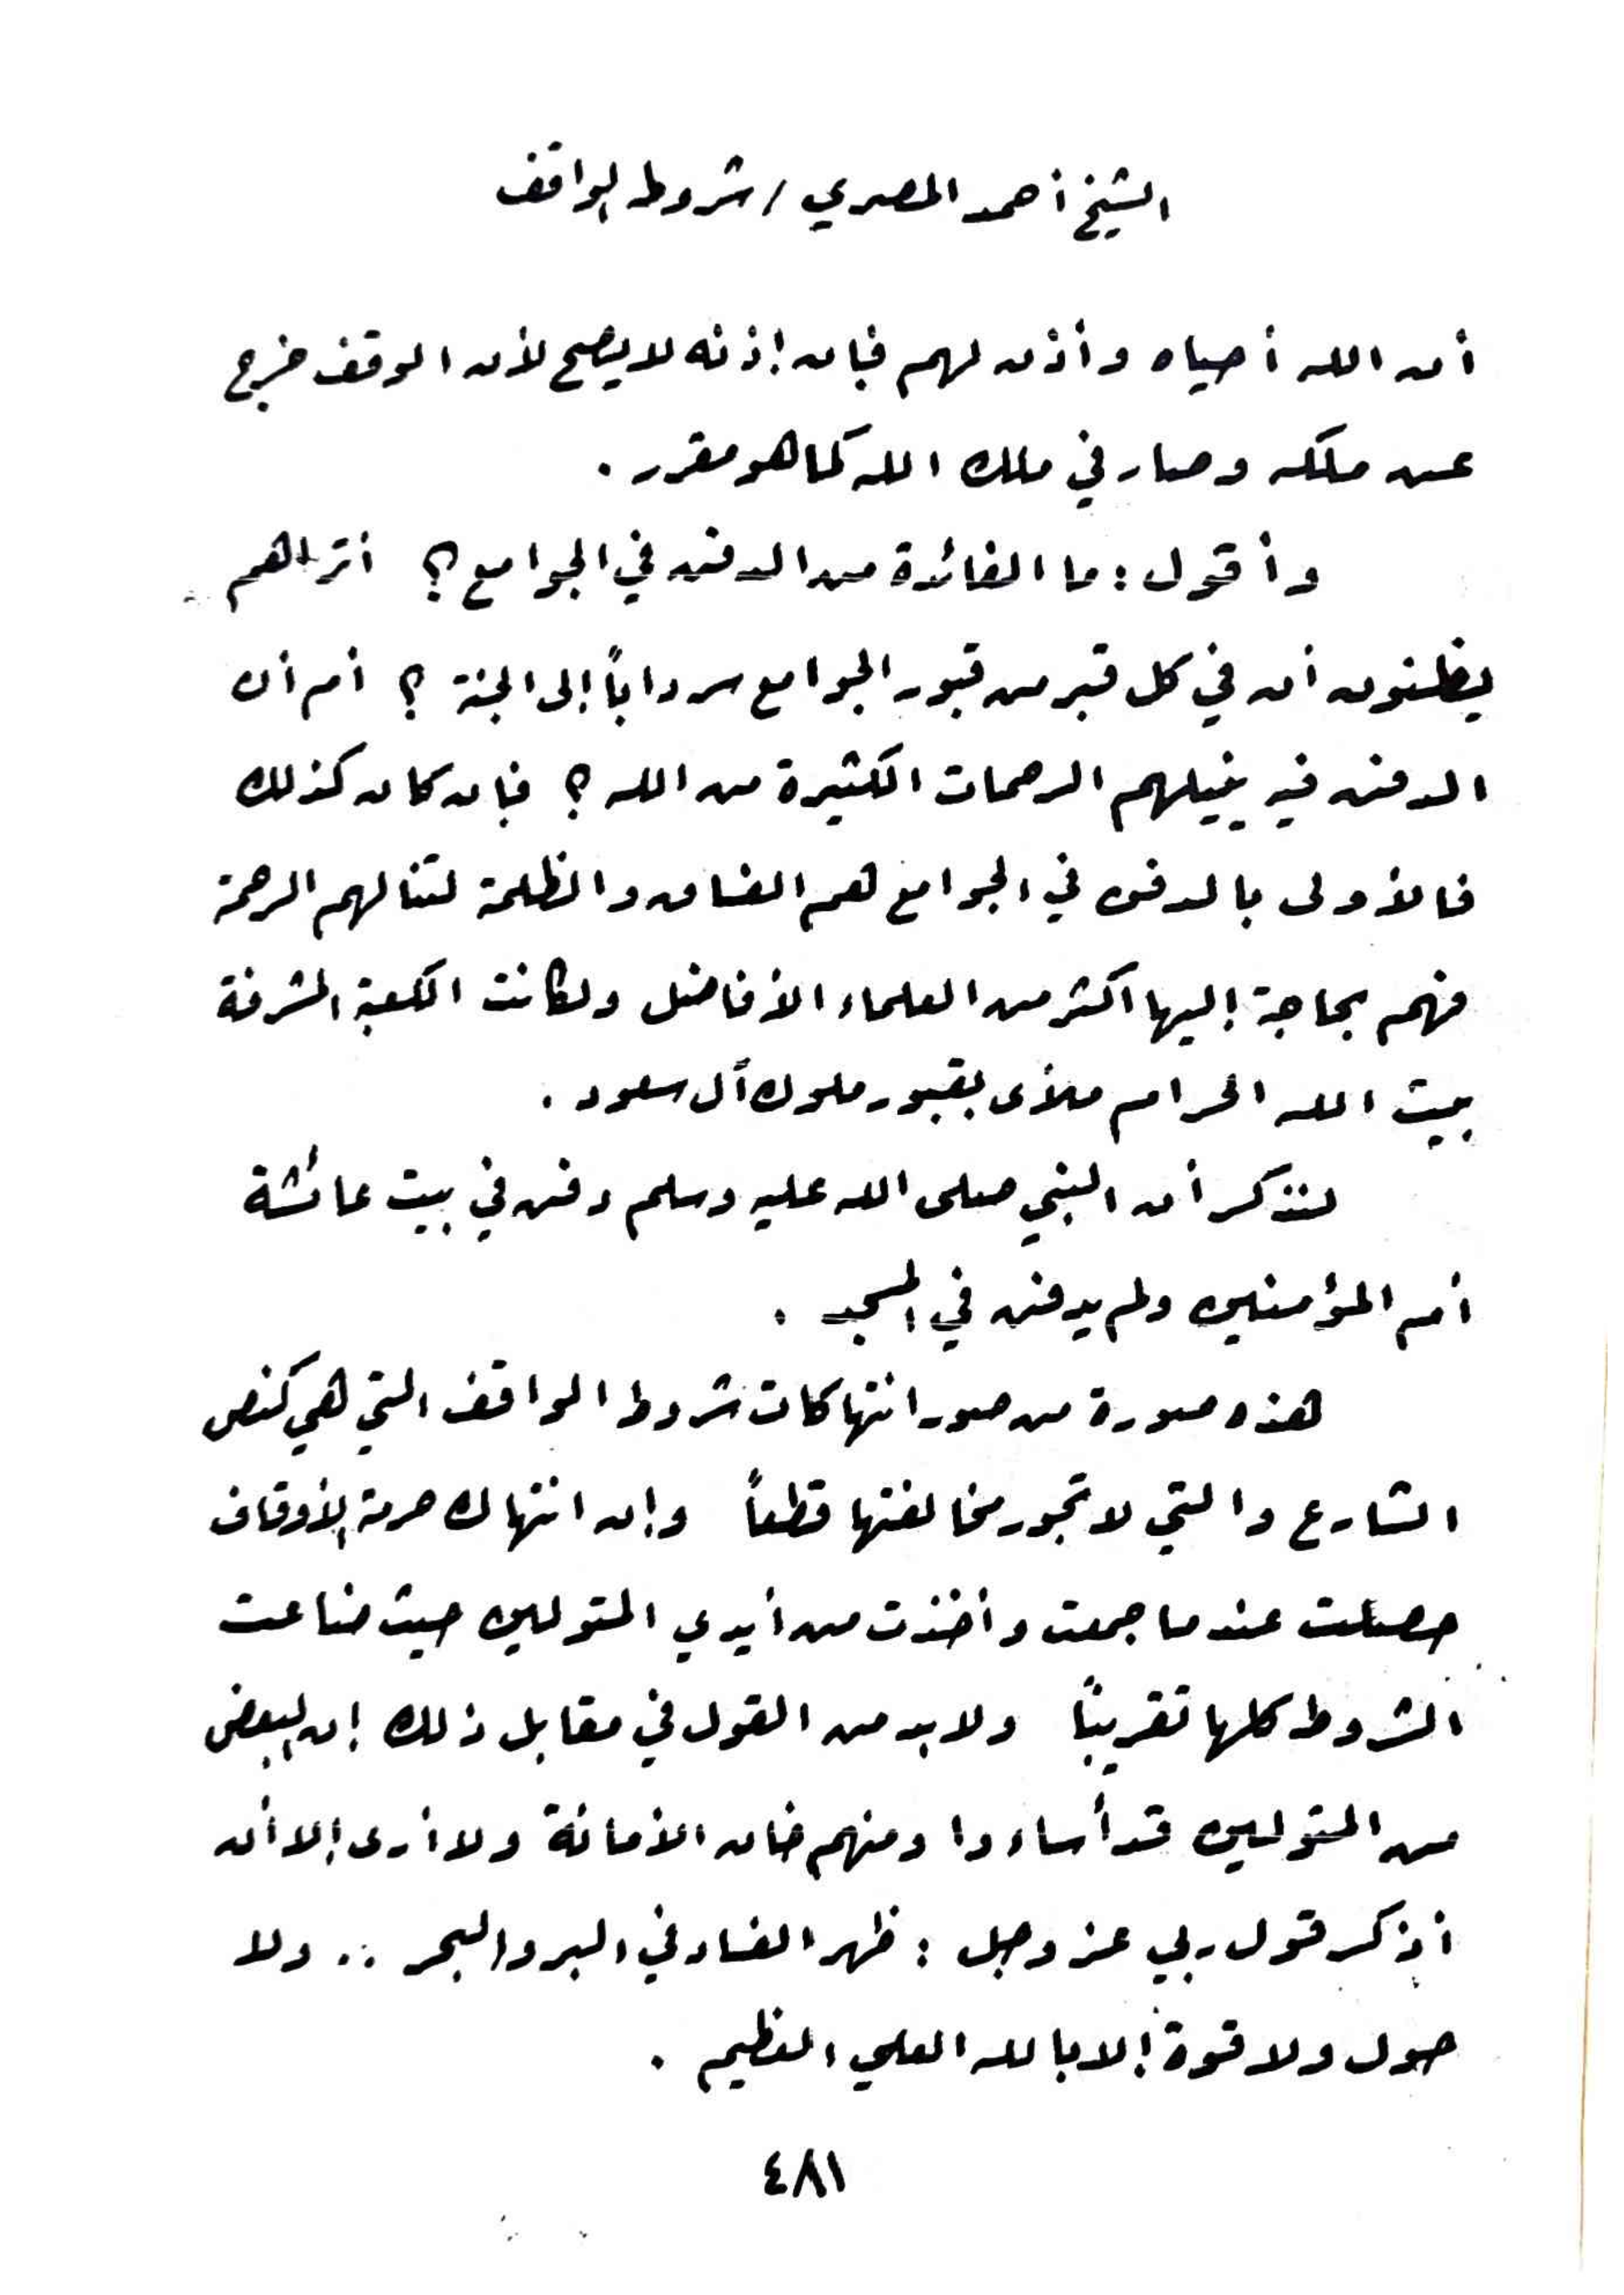 الشيخ أحمد المصري / شروط الواقف
أن الله أحياه وأذن لهم فإن إذنه لا يصح لأن الوقف خرج
عن ملكه وصار في ملك الله كما هو مقرر .
وأقول : ما الفائدة من الدفن في الجوامع ؟ أتراهم
يظنون أن في كل قبر من قبور الجوامع سرداباً إلى الجنة ؟ أم أن
الدفن فيه ينيلهم الرحمات الكثيرة من الله ؟ فإن كان كذلك
فالأولى بالدفن في الجوامع هم الفساق والظلمة لتنالهم الرحمة
فهم بحاجة إليها أكثر من العلماء الأفاضل ولكانت الكعبة المشرفة
بيت الله الحرام ملأى بقبور ملوك آل سعود .
لنذكر أن النبي صلى الله عليه وسلم دفن في بيت عائشة
أم المؤمنين ولم يدفن في المسجد .
هذه صورة من صور انتهاكات شروط الواقف التي هي كنص
الشارع والتي لا تجور مخالفتها قطعاً وإن انتهاك حرمة الأوقاف
حصلت عندما جمعت وأخذت من أيدي المتولين حيث ضاعت
الشروط كلها تقريباً ولابد من القول في مقابل ذلك إن البعض
من المتولين قد أساءوا ومنهم خان الأمانة ولا أرى إلا أن
أذكر قول ربي عز وجل : ظهر الفساد في البر والبحر .. ولا
حول ولا قوة إلا بالله العلي العظيم .
٤٨١